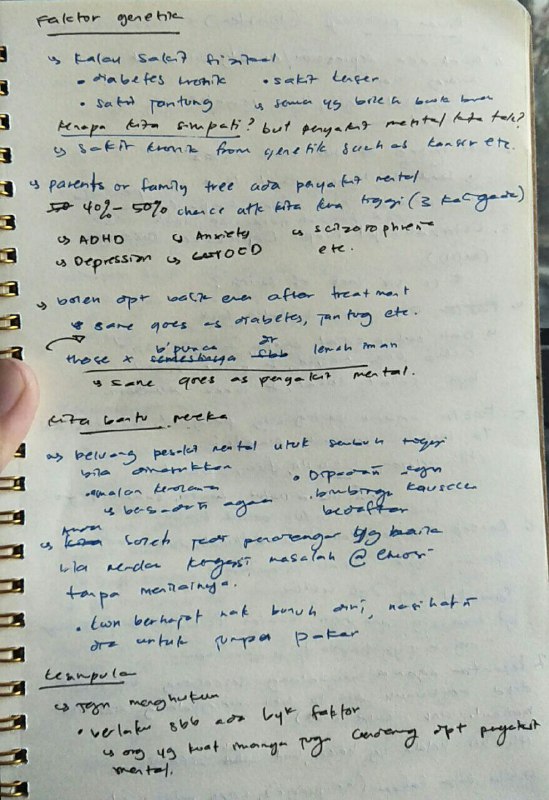 Faktor genetik
↳ Kalau sakit fizikal
• diabetes kronik • sakit kanser
• sakit jantung ↳ semua yg boleh
Kenapa kita simpati? but penyakit mental kita tak?
↳ sakit kronik from genetik such as kanser etc.
↳ parents or family tree ada penyakit mental
40% - 50% chance utk kita kena tinggi (3 kali ganda)
↳ ADHD ↳ Anxiety ↳ scizorophrenia
↳ Depression ↳ OCD etc.
↳ boleh dpt balik even after treatment
↳ same goes as diabetes, jantung etc.
b'punca or
those x semestinya sbb lemah iman
↳ same goes as penyakit mental.
Kita bantu mereka
↳ peluang pesakit mental utuk sembuh tinggi
bila
• amalan • Dipadan dgn
↳ bimbingan kaunselor
berdaftar
↳ boleh jadi pendengar yg baik
bila mereka kongsi masalah @ emosi
tanpa menilainya.
• kwn berhajat nak bunuh diri, nasihatn
dia untuk jumpa pakar
Kesimpula
↳ jgn menghukum
• berlaku sbb ada byk faktor
↳ org yg kuat juga cenderung dpt penyakit
mental.